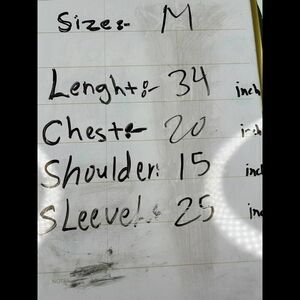 Size:- M
Lenght:- 34 inch
Chest:- 20 inch
Shoulder: 15 incl
SLeevel: 25 in